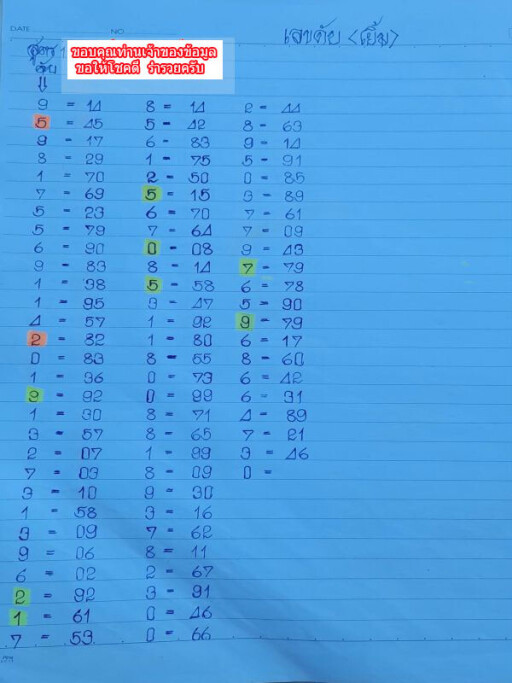 DATE
NO
เลขดับ <เยิ้ม>
สูตร 1
ดับ
ขอบคุณท่านเจ้าของข้อมูล
ขอให้โชคดี ร่ำรวยครับ
9 = 14 8 = 14 2 = 44
5 = 45 5 = 42 8 = 63
9 = 17 6 = 83 9 = 14
8 = 29 1 = 75 5 = 91
1 = 70 2 = 50 0 = 85
7 = 69 5 = 15 3 = 89
5 = 23 6 = 70 7 = 61
5 = 79 7 = 64 7 = 09
6 = 90 0 = 08 9 = 43
9 = 83 8 = 14 7 = 79
1 = 98 5 = 58 6 = 78
1 = 95 3 = 47 5 = 90
4 = 57 1 = 92 9 = 79
2 = 82 1 = 80 6 = 17
0 = 83 8 = 55 8 = 60
1 = 36 0 = 73 6 = 42
9 = 92 0 = 99 6 = 31
1 = 30 8 = 71 4 = 89
3 = 57 8 = 65 7 = 21
2 = 07 1 = 99 3 = 46
7 = 03 8 = 09 0 =
3 = 10 9 = 30
1 = 58 3 = 16
3 = 09 7 = 62
9 = 06 8 = 11
6 = 02 2 = 67
2 = 92 3 = 91
1 = 61 0 = 46
7 = 53 0 = 66